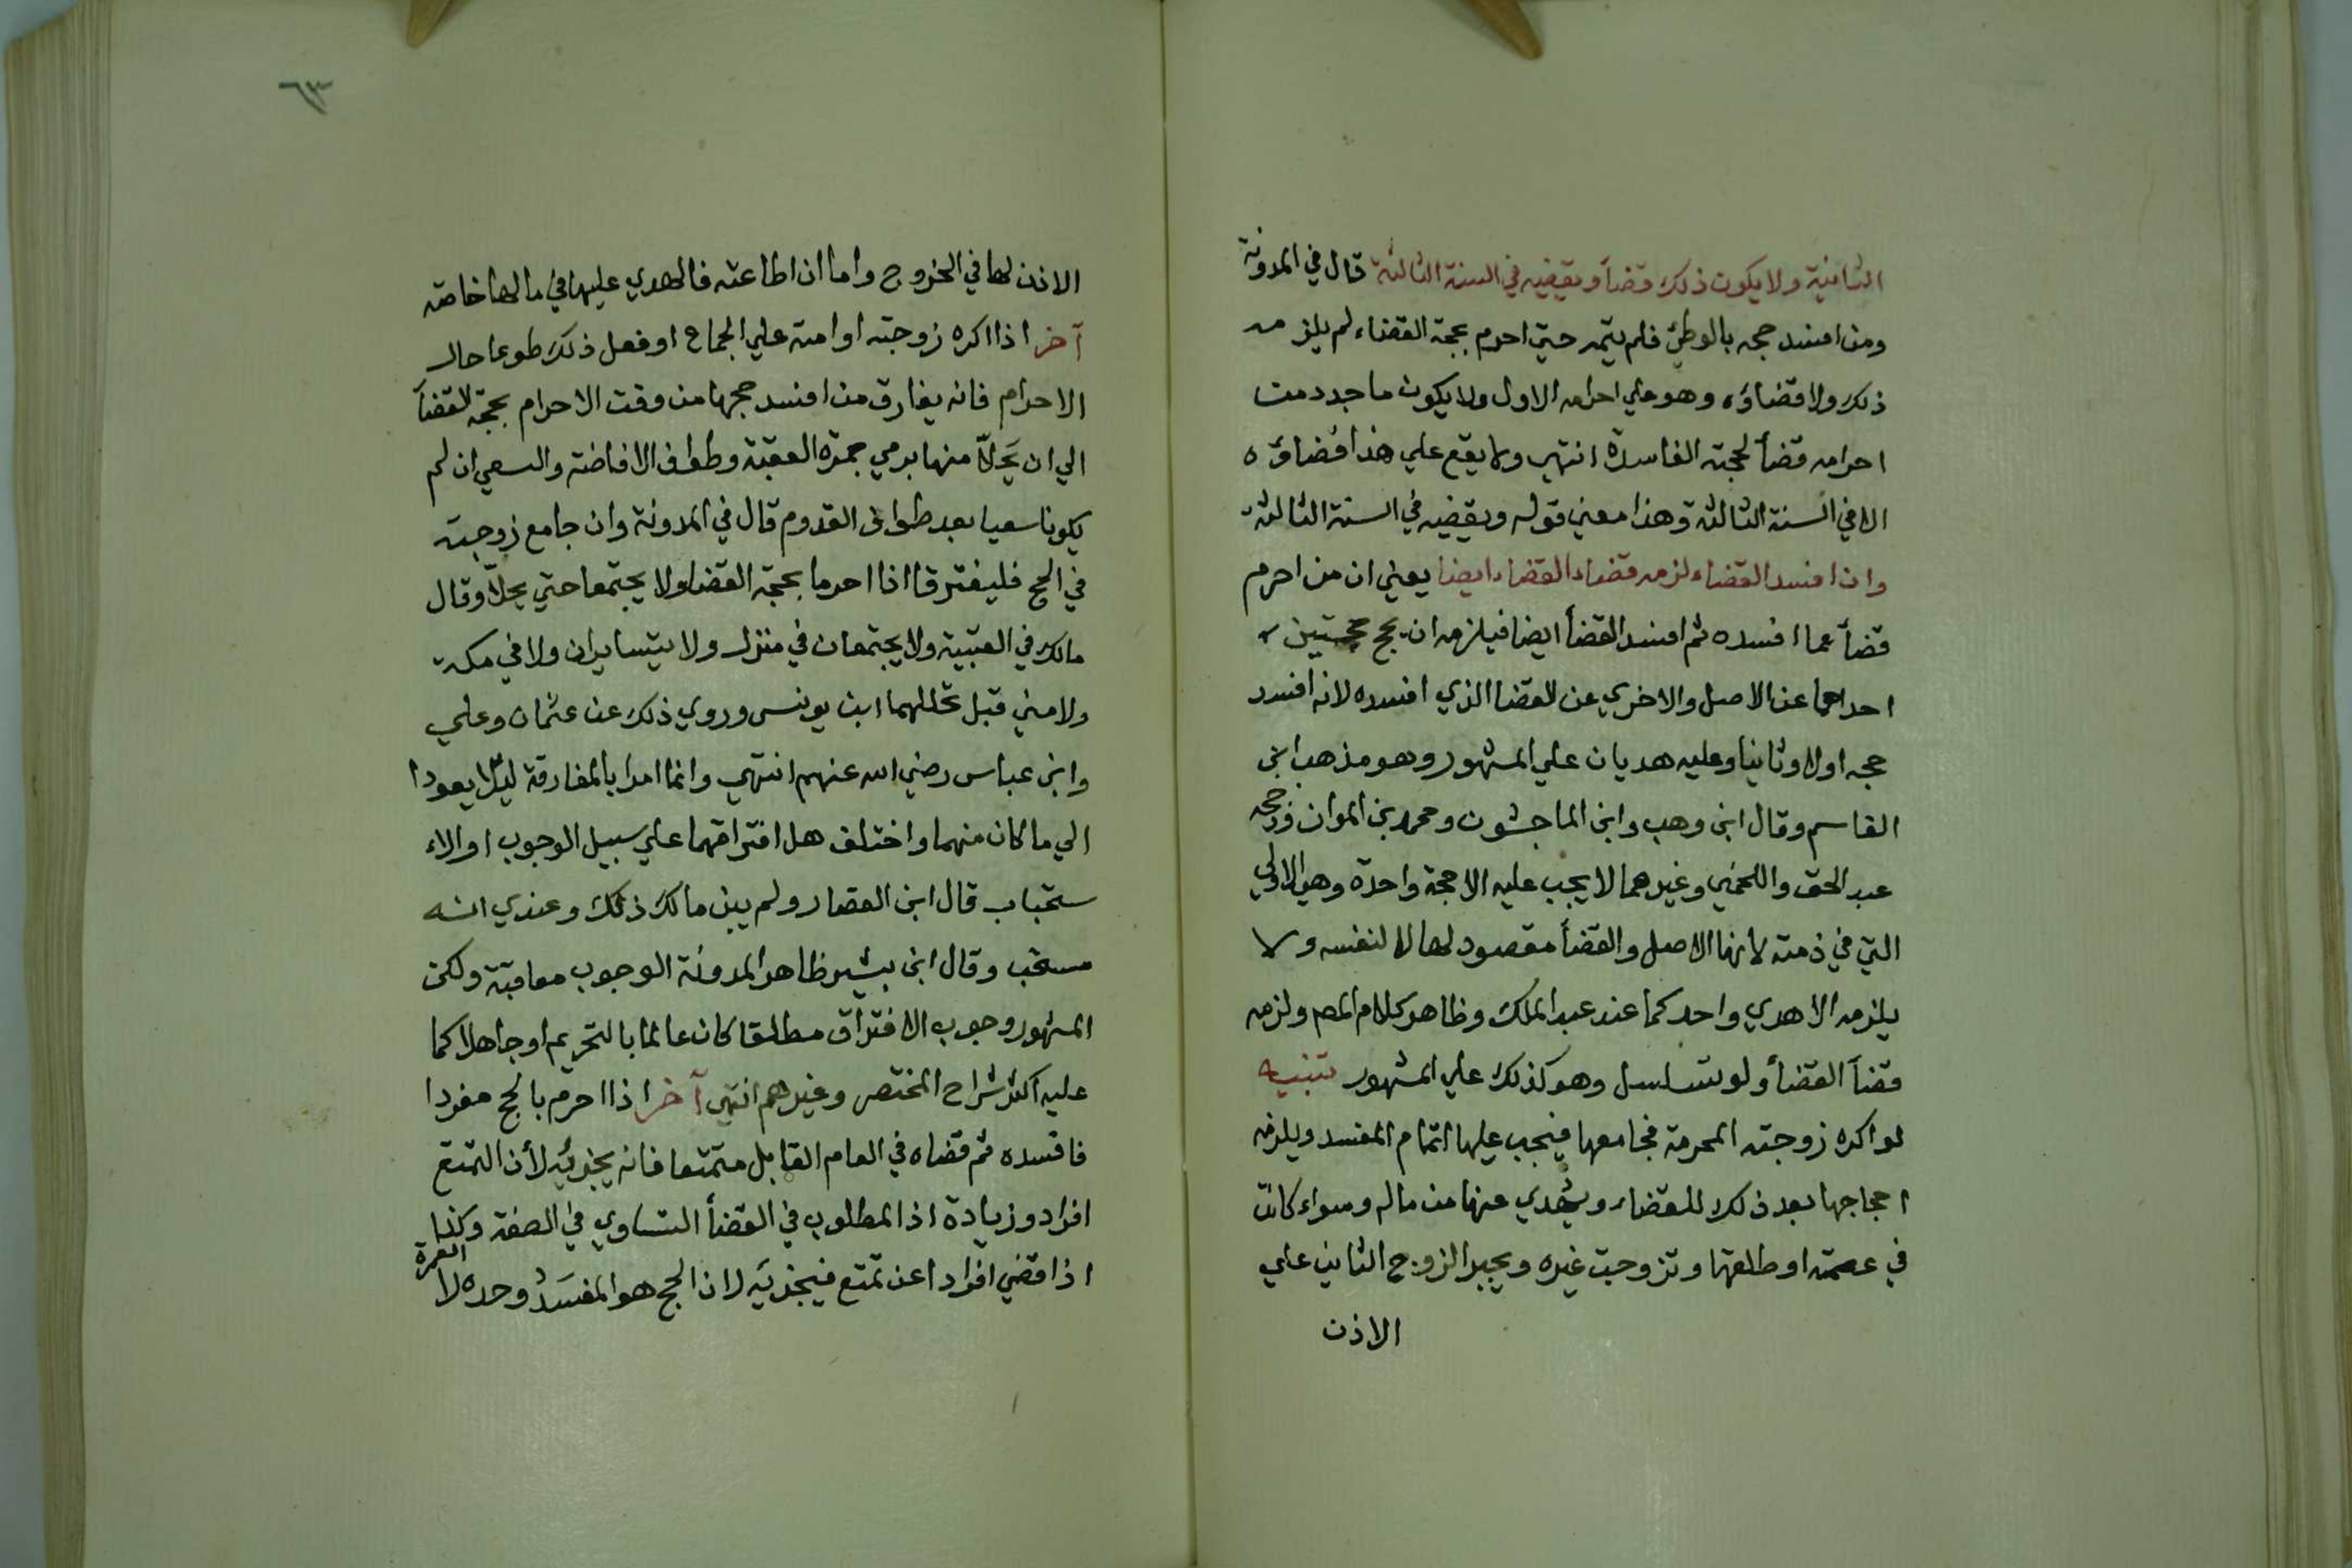 الثانية ولا يكون ذلك قضأ ويقضيه في السنة الثالثة قال في المدونة
ومن افسد حجه بالوطئ فلم يتمه حتي احرم بحجة القضاء لم يلزمه
ذلك ولا قضاؤه وهو علي احرامه الاول ولا يكون ما جدد من
احرامه قضأ لحجته الفاسدة انتهي ولا يقع علي هذا قضاؤه
الا في السنة الثالثة وهذا معني قوله ويقضيه في السنة الثالثة
وان افسد القضاء لزمه قضاء القضاء ايضا يعني ان من احرم
قضأ عما افسده ثم افسد القضأ ايضا فيلزمه ان يحج حجتين
احداهما عن الاصل والاخري عن القضا الذي افسده لانه افسد
حجه اولا وثانيا وعليه هديان علي المشهور وهو مذهب ابن
القاسم وقال ابن وهب وابن الماجشون ومحمد بن المواز ورجحه
عبد الحق واللخمي وغيرهما لا يجب عليه الا حجة واحدة وهي الاولي
التي في ذمته لانها الاصل والقضأ مقصود لها لا لنفسه ولا
يلزمه الا هدي واحد كما عند عبد الملك وظاهر كلام المص ولزمه
قضأ القضأ ولو تسلسل وهو كذلك علي المشهور تنبيه
لو اكره زوجته المحرمة فجامعها فيجب عليها اتمام المفسد ويلزمه
احجاجها بعد ذلك للقضاء ويهدي عنها من ماله وسواء كانت
في عصمته او طلقها وتزوجت غيره ويجبر الزوج الثاني علي
الاذن
٦٣
الاذن لها في الخروج واما ان اطاعته فالهدي عليها في مالها خاصة
آخر اذا اكره زوجته او امته علي الجماع او فعل ذلك طوعا حال
الاحرام فانه يفارق من افسد حجها من وقت الاحرام بحجة القضأ
الي ان يَحِلاّ منها برمي جمرة العقبة وطواف الافاضة والسعي ان لم
يكونا سعيا بعد طواف القدوم قال في المدونة وان جامع زوجته
في الحج فليفترقا اذا احرما بحجة القضا ولا يجتمعا حتي يحلاّ وقال
مالك في العتبية ولا يجتمعان في منزل ولا يتسايران ولا في مكة
ولا مني قبل تحللهما ابن يونس وروي ذلك عن عثمان وعلي
وابن عباس رضي الله عنهم انتهي وانما امرا بالمفارقة ليلا يعودا
الي ما كان منهما واختلف هل افتراقهما علي سبيل الوجوب او الا
ستحباب قال ابن القصار ولم يبين مالك ذلك وعندي انه
مستحب وقال ابن بشير ظاهر المدونة الوجوب معاقبة ولكن
المشهور وجوب الافتراق مطلقا كان عالما بالتحريم او جاهلا كما
عليه اكثر شراح المختصر وغيرهم انتهي آخر اذا احرم بالحج مفردا
فافسده ثم قضاه في العام القابل متمتعا فانه يجزئيه لأن التمتع
افراد وزيادة اذ المطلوب في القضأ التساوي في الصفة وكذا
اذا قضي افرادا عن تمتع فيجزيه لان الحج هو المفسَدُ وحده لا العمرة